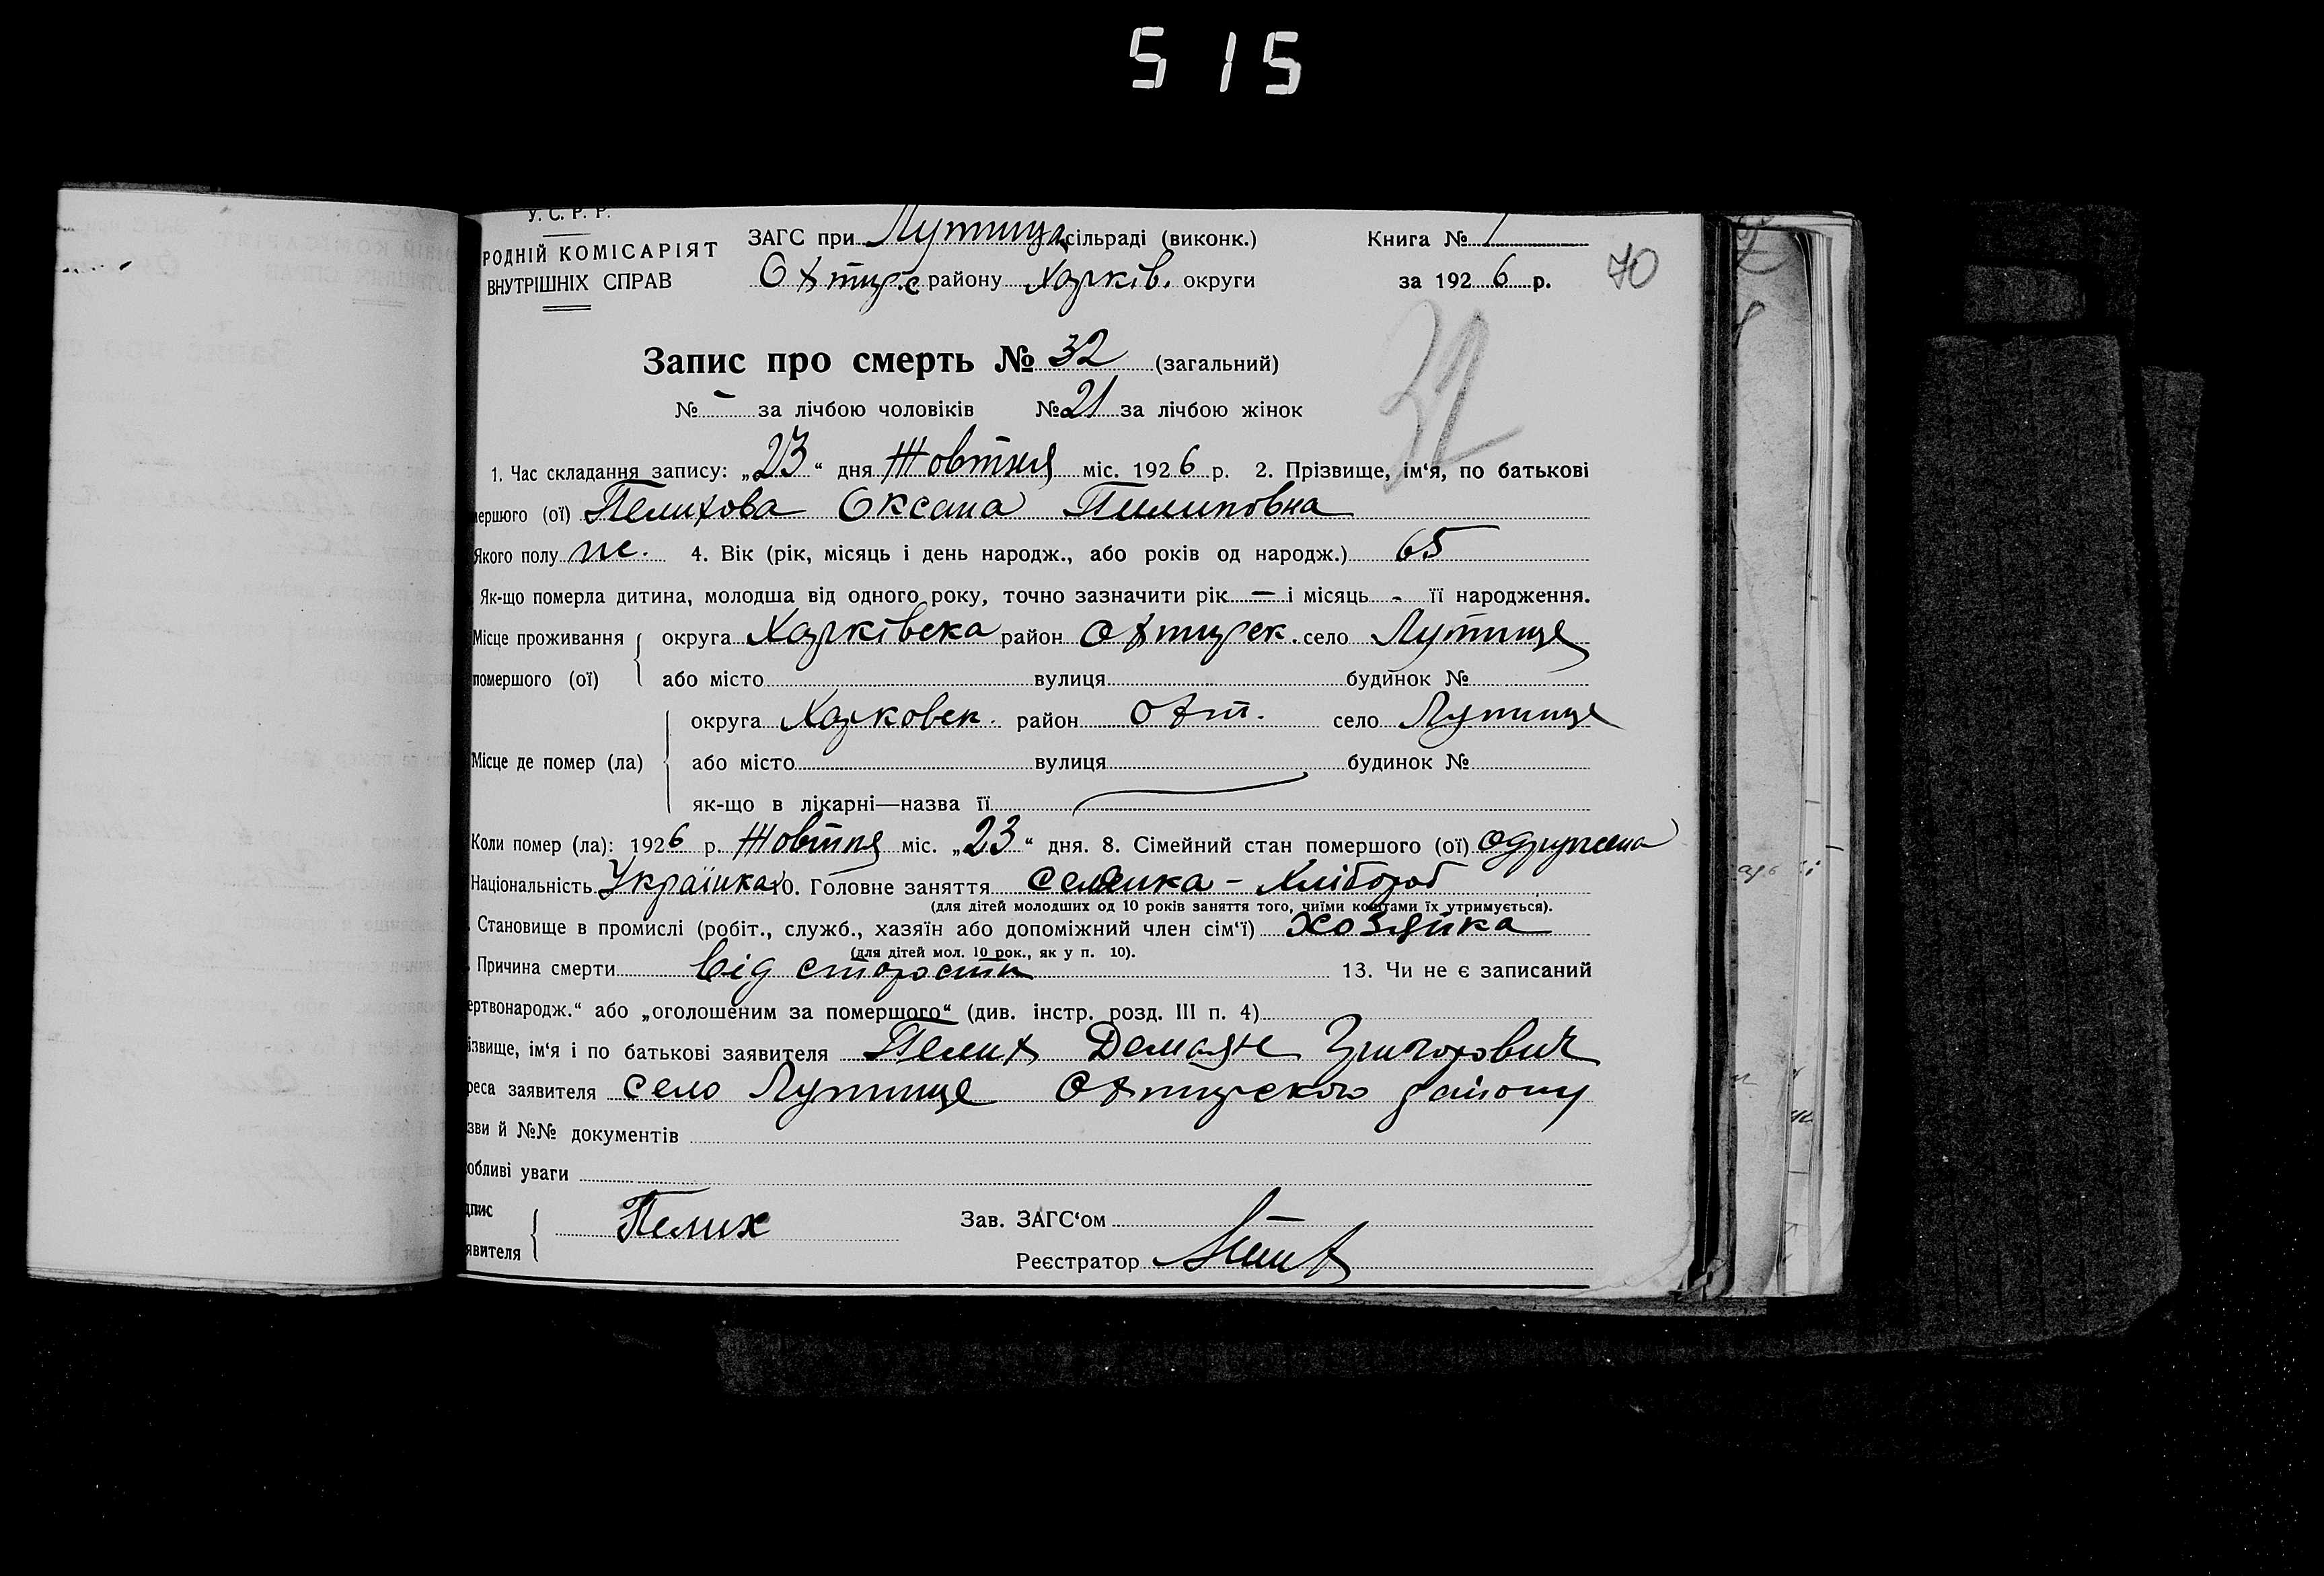 515
У. С. Р. Р.
РОДНІЙ КОМІСАРІЯТ
ВНУТРІШНІХ СПРАВ
ЗАГС при Лутища сільраді (виконк.)
Охтирс району Харків. округи
Книга № 1
за 1926 р.
70
Запис про смерть № 32 (загальний)
№ - за лічбою чоловіків № 21 за лічбою жінок
32
1. Час складання запису: „23“ дня Жовтня міс. 1926 р. 2. Прізвище, ім‘я, по батькові
мершого (ої) Пелихова Оксана Пилиповка
Якого полу же. 4. Вік (рік, місяць і день народж., або років од народж.) 65
Як-що померла дитина, молодша від одного року, точно зазначити рік — і місяць - її народження.
Місце проживання помершого (ої) округа Харківська район Охтирск. село Лутище
або місто вулиця будинок №
Місце де помер (ла) округа Харковск. район Охт. село Лутище
або місто вулиця будинок №
як-що в лікарні—назва її
Коли помер (ла): 1926 р. Жовтня міс. „23“ дня. 8. Сімейний стан помершого (ої) одружена
Національність Українка 10. Головне заняття селянка - Хлібороб
(для дітей молодших од 10 років заняття того, чиїми коштами їх утримується).
Становище в промислі (робіт., служб., хазяїн або допоміжний член сім‘ї) хозяйка
(для дітей мол. 10 рок., як у п. 10).
Причина смерти від старости 13. Чи не є записаний
ертвонародж.“ або „оголошеним за помершого“ (див. інстр. розд. III п. 4)
ізвище, ім‘я і по батькові заявителя Пелих Демяне Григорович
реса заявителя село Лутище Охтирского району
зви й №№ документів
обливі уваги
дпис явителя Пелих
Зав. ЗАГС‘ом
Реєстратор